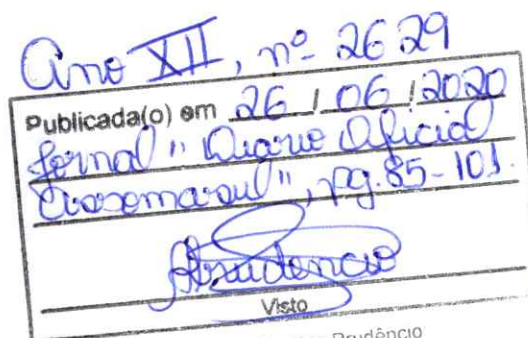 Ano XII, nº 2629
Publicada(o) em 26 / 06 / 2020
Jornal "Diário Oficial
Assomasul", pg. 85-101.
Aprudencio
Visto
Prudêncio